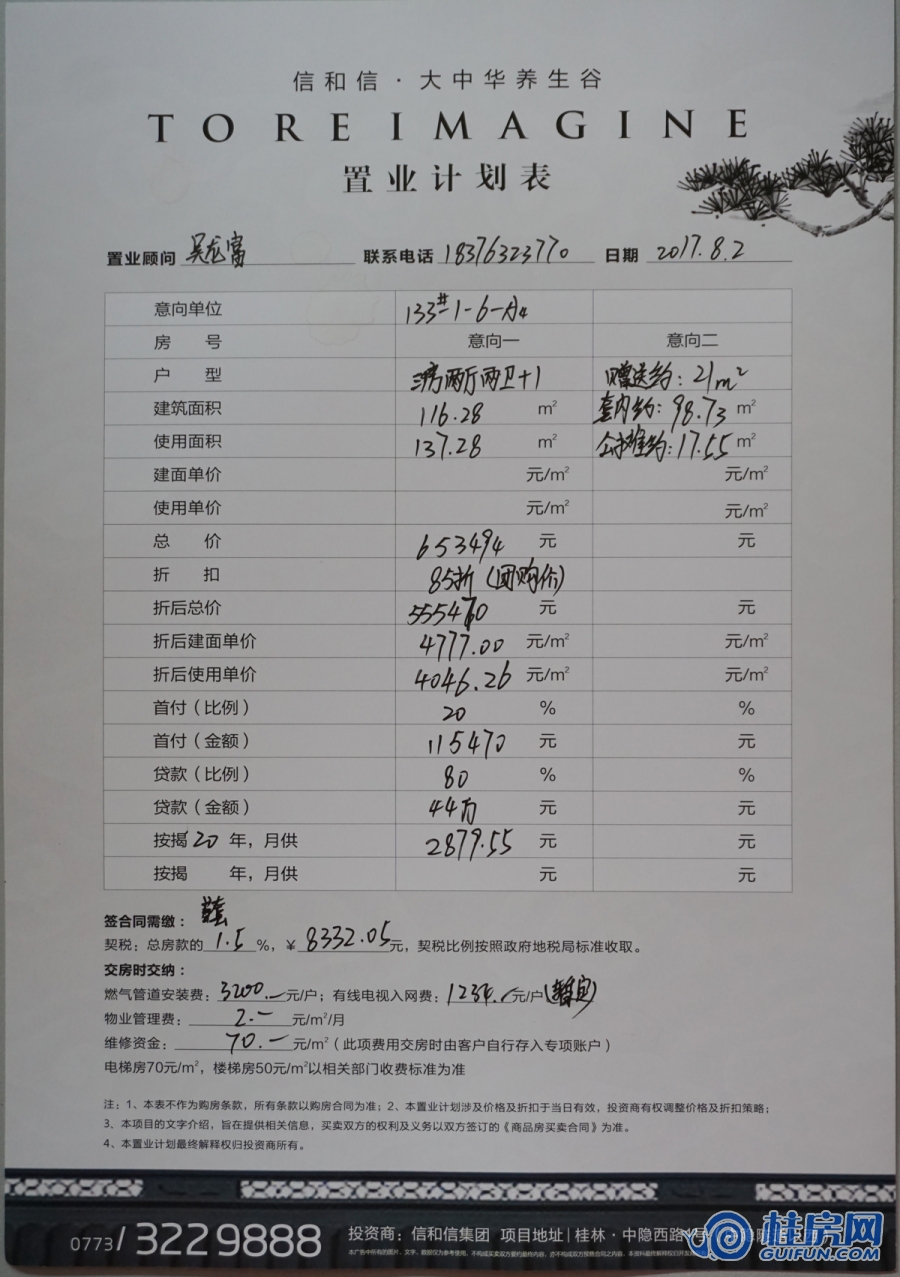 信和信·大中华养生谷
TOREIMAGINE
置业计划表
置业顾问 吴龙富 联系电话 18376323770 日期 2017.8.2
意向单位 133#-1-6-A4
房 号 意向一 意向二
户 型 三房两厅两卫+1 赠送约：21m²
建筑面积 116.28 m² 套内约：98.73 m²
使用面积 137.28 m² 公摊约：17.55 m²
建面单价 元/m² 元/m²
使用单价 元/m² 元/m²
总 价 653494 元 元
折 扣 85折（团购价）
折后总价 555470 元 元
折后建面单价 4777.00 元/m² 元/m²
折后使用单价 4046.26 元/m² 元/m²
首付（比例） 20 % %
首付（金额） 115470 元 元
贷款（比例） 80 % %
贷款（金额） 44万 元 元
按揭 20 年，月供 2879.55 元 元
按揭 年，月供 元 元
签合同需缴：
契税：总房款的 1.5 %，¥ 8332.05 元，契税比例按照政府地税局标准收取。
交房时交纳：
燃气管道安装费：3200.— 元/户；有线电视入网费：1234.— 元/户（暂定）
物业管理费： 2.— 元/m²/月
维修资金： 70.— 元/m²（此项费用交房时由客户自行存入专项账户）
电梯房70元/m²，楼梯房50元/m²以相关部门收费标准为准
注：1、本表不作为购房条款，所有条款以购房合同为准；2、本置业计划涉及价格及折扣于当日有效，投资商有权调整价格及折扣策略；
3、本项目的文字介绍，旨在提供相关信息，买卖双方的权利及义务以双方签订的《商品房买卖合同》为准。
4、本置业计划最终解释权归投资商所有。
0773/3229888 投资商：信和信集团 项目地址|桂林·中隐西路1号
桂房网
GUIFUN.COM